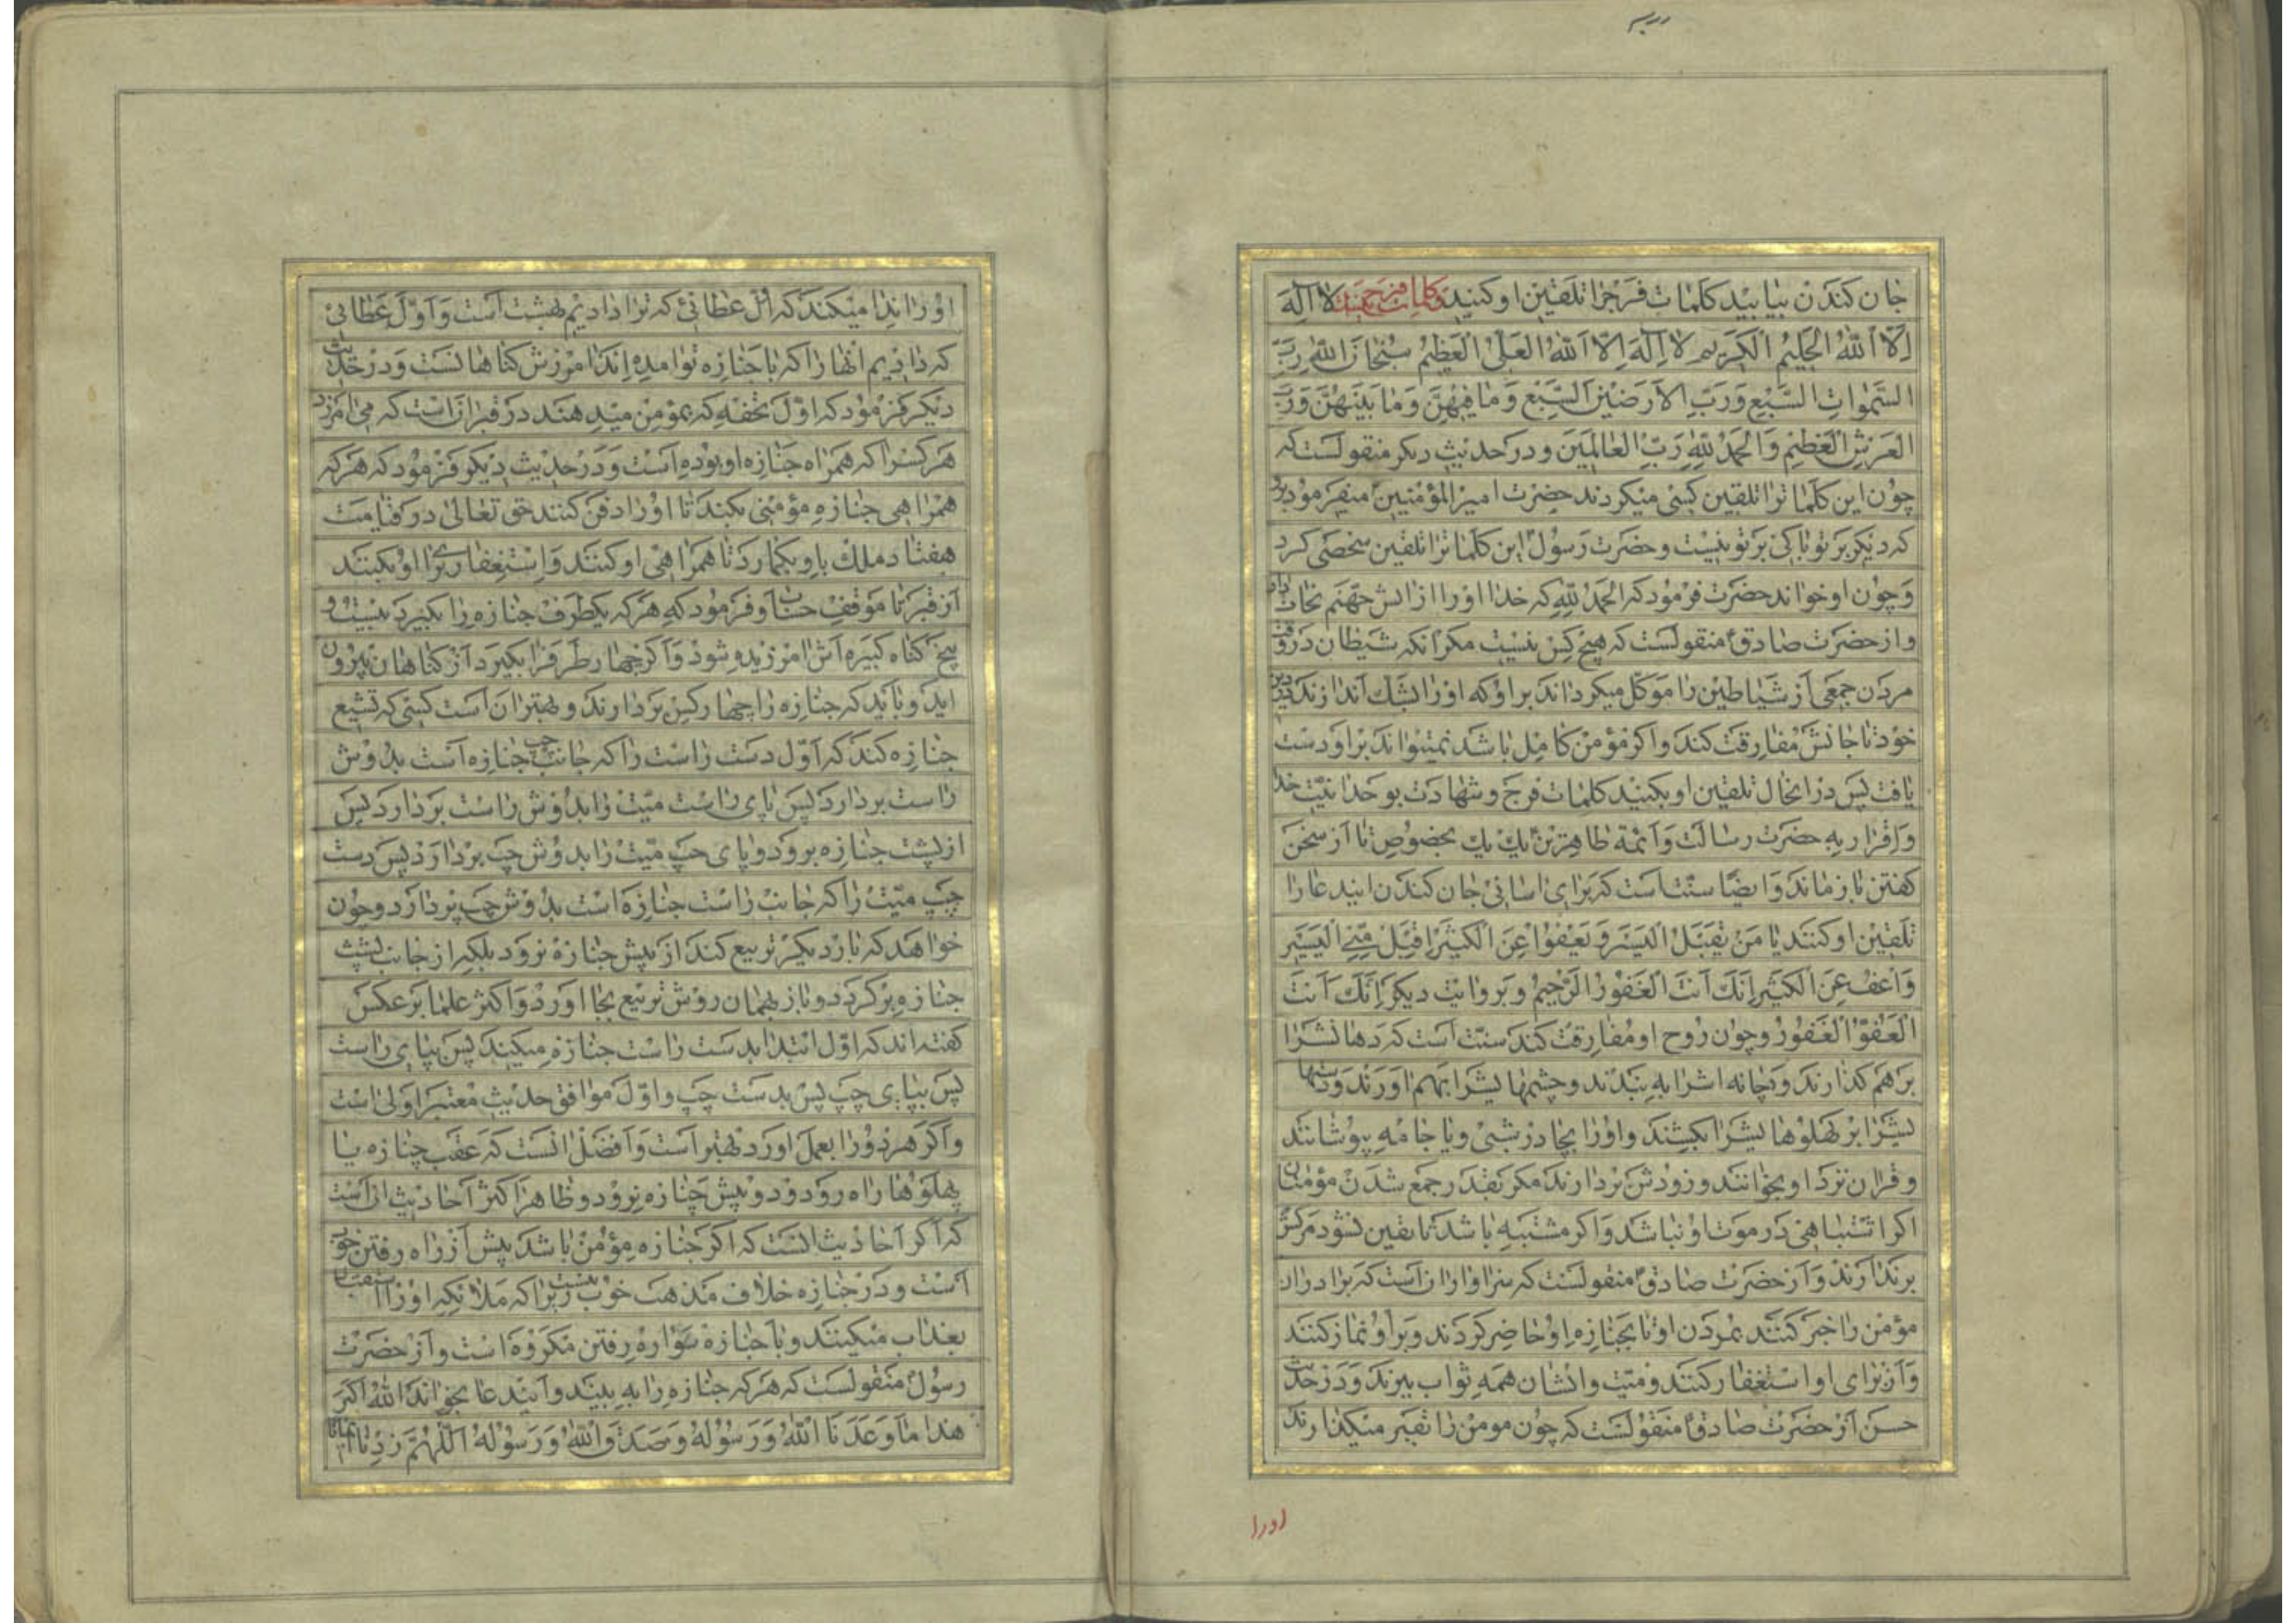 جان کندن بیابید کلمات فرجرا تلقین او کنید و کلمات فرج اینست لا اله
الا الله الحلیم الکریم لا اله الا الله العلی العظیم سبحان الله رب
السموات السبع و رب الارضین السبع و ما فیهن و ما بینهن و رب
العرش العظیم و الحمد لله رب العالمین و در حدیث دیکر منقولست که
چون این کلماترا تلقین کسی میکردند حضرت امیر المؤمنین میفرمود برو
که دیکر بر تو باکی بر تو نیست و حضرت رسول این کلماترا تلقین شخصی کرد
و چون او خواند حضرت فرمود که الحمد لله که خدا او را از اتش جهنم نجات داد
و از حضرت صادق منقولست که هیچ کس نیست مکر انکه شیطان در وقت
مردن جمعی از شیاطین را موکل میکرداند بر او که او را بشک اندازند در دین
خود تا جانش مفارقت کند و اکر مؤمن کامل باشد نمیتواند بر او دست
یافت پس در انحال تلقین او بکنید کلمات فرج و شهادت بوحدانیت خدا
و اقرار به حضرت رسالت و ائمه طاهرین یک یک بخصوص تا از سخن
کفتن باز ماند و ایضا سنت است که برای اسانی جان کندن ایندعا را
تلقین او کنند یا من یقبل الیسر و یعفوا عن الکثیر اقبل منی الیسیر
و اعف عن الکثیر انک انت الغفور الرحیم و بروایت دیکر انک انت
العفو الغفور و چون روح او مفارقت کند سنت است که دهانشرا
بر هم کذارند و چانه اشرا به بندند و چشمهایشرا بهم اورند و دستها
یشرا بر پهلوهایشرا بکشند و او را بچادر شبی و یا جامه بپوشانند
و قران نزد او بخوانند و زودش بردارند مکر بقدر جمع شدن مؤمنان
اکر اشتباهی در موت او نباشد و اکر مشتبه باشد تا یقین نشود مرکش
برندارند و از حضرت صادق منقولست که سزاوار ان است که برادران
مؤمن را خبر کنند بمردن او تا بجنازه او حاضر کردند و بر او نماز کنند
و از برای او استغفار کنند و میت و ایشان همه ثواب ببرند و در حدیث
حسن از حضرت صادق منقولست که چون مومن را بقبر میکذارند
اورا
او را ندا میکند که اول عطائی که ترا دادیم بهشت است و اول عطائی
که دادیم انها را که با جنازه تو امده اند امرزش کناهانست و در حدیث
دیکر فرمود که اول تحفه که بمؤمن میدهند در قبر ان است که می امرزد
هر کسرا که همراه جنازه او بوده است و در حدیث دیکر فرمود که هر که
همراهی جنازه مؤمنی بکند تا او را دفن کنند حق تعالی در قیامت
هفتاد ملک باو بکمارد تا همراهی او کنند و استغفار برای او بکنند
از قبر تا موقف حساب و فرمود که هر که یکطرف جنازه را بکیرد بیست و
پنج کناه کبیره اش امرزیده شود و اکر چهار طرفرا بکیرد از کناهان بیرون
اید و باید که جنازه را چهار کس بردارند و بهتر ان است کسی که تشیع
جنازه کند که اول دست راست را که جانب چپ جنازه است بدوش
راست بردارد پس پای راست میت را بدوش راست بردارد پس
از پشت جنازه برود و پای چپ میت را بدوش چپ بردارد پس دست
چپ میت را که جانب راست جنازه است بدوش چپ بردارد و چون
خواهد که بار دیکر تربیع کند از پیش جنازه نرود بلکه از جانب پشت
جنازه برکردد و باز بهمان روش تربیع بجا اورد و اکثر علما بر عکس
کفته اند که اول ابتدا بدست راست جنازه میکند پس بپای راست
پس بپای چپ پس بدست چپ و اول موافق حدیث معتبر اولی است
و اکر هر دو را بعمل اورد بهتر است و افضل انست که عقب جنازه یا
پهلوها راه رود و در پیش جنازه نرود و ظاهر اکثر احادیث ان است
که اکر احادیث انست که اکر جنازه مؤمن باشد پیش از راه رفتن خوب
است و در جنازه خلاف مذهب خوب نیست زیرا که ملائکه او را استقبال
بعذاب میکنند و با جنازه سواره رفتن مکروه است و از حضرت
رسول منقولست که هر که جنازه را به بیند و ایندعا بخواند الله اکبر
هذا ما وعدنا الله و رسوله و صدق الله و رسوله اللهم زدنا ایمانا